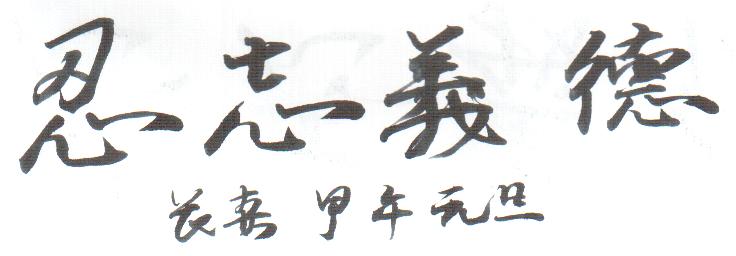 忍志義德
长嘉 甲午元旦